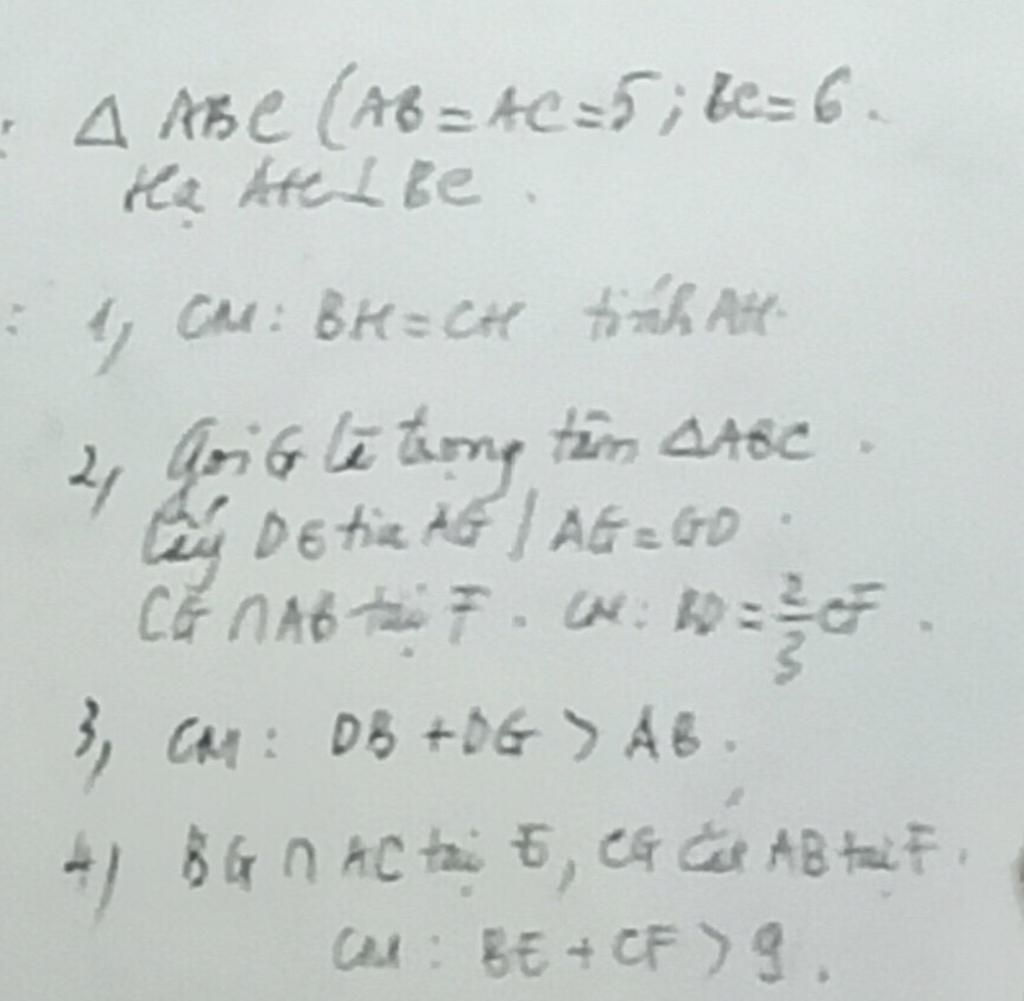 : Δ ABC (AB = AC = 5 ; BC = 6.
Hạ AH ⊥ BC.
: 1, CM : BH = CH tính AH.
2, Gọi G là trọng tâm ΔABC.
Lấy D ∈ tia AG / AG = GD.
CG ∩ AB tại F. CM : BD = 2/3 CF.
3, CM : DB + DG > AB.
4) BG ∩ AC tại E, CG cắt AB tại F.
CM : BE + CF > 9.